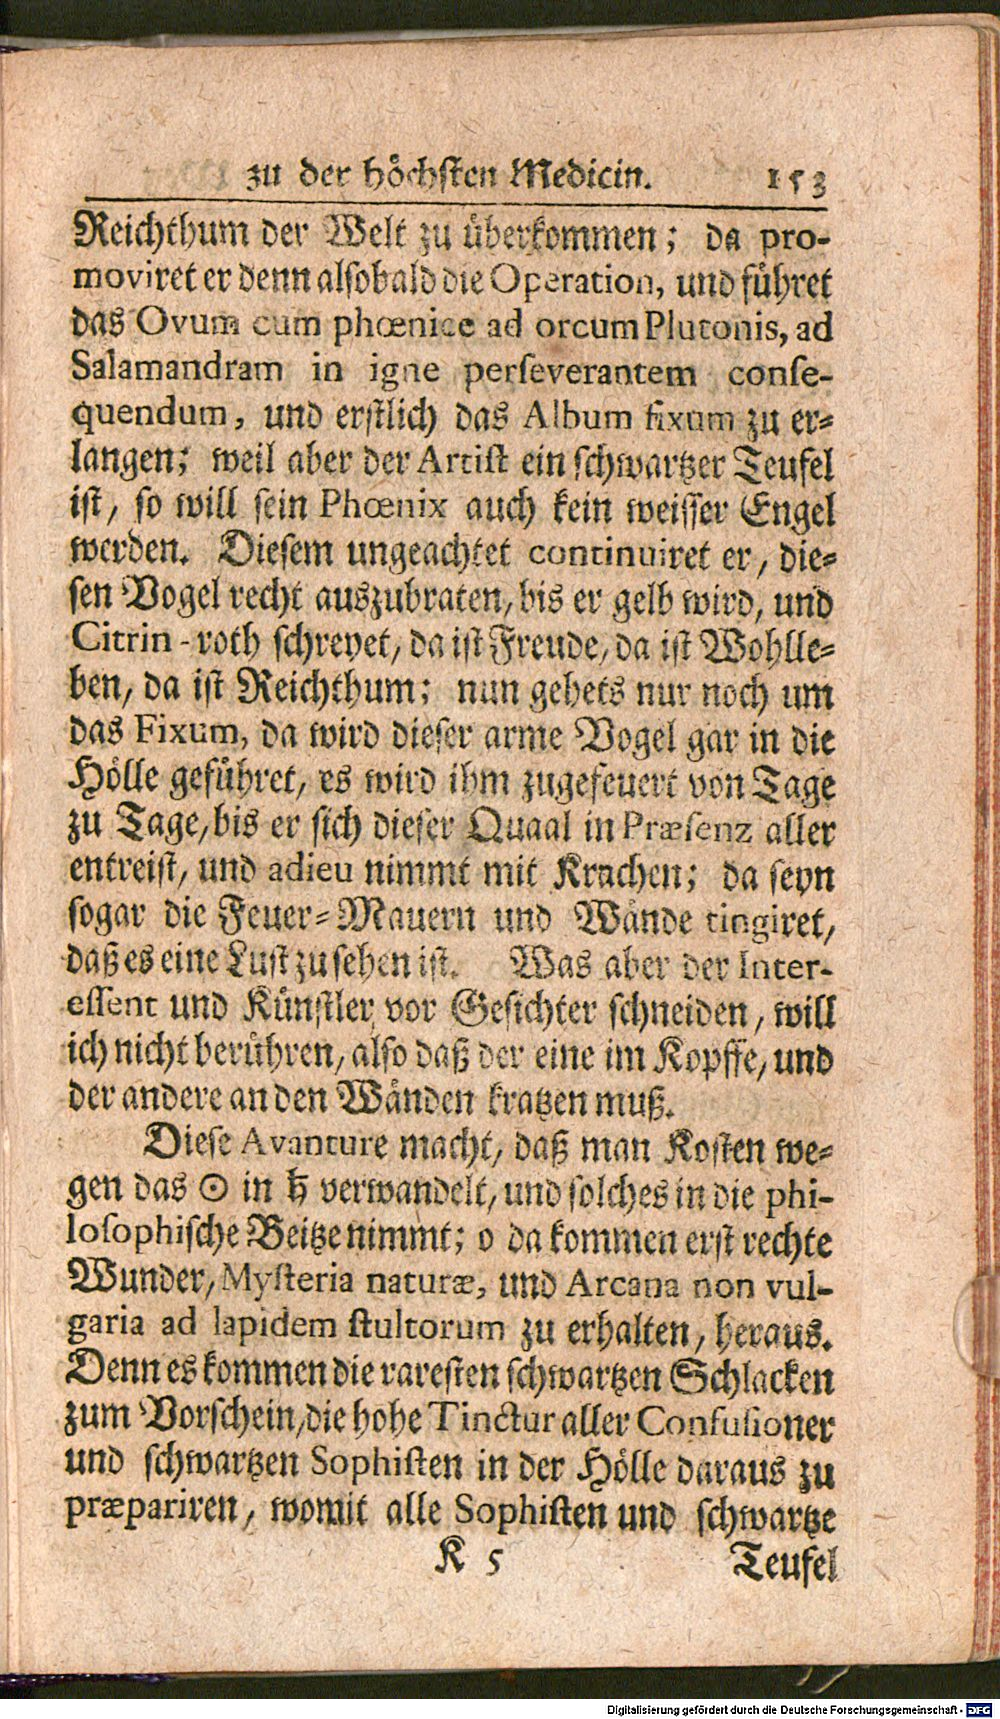 zu der höchsten Medicin. 153
Reichthum der Welt zu überkommen; da pro-
moviret er denn alsobald die Operation, und führet
das Ovum cum phœnice ad orcum Plutonis, ad
Salamandram in igne perseverantem conse-
quendum, und erstlich das Album fixum zu er-
langen; weil aber der Artist ein schwartzer Teufel
ist, so will sein Phœnix auch kein weisser Engel
werden. Diesem ungeachtet continuiret er, die-
sen Vogel recht auszubraten, bis er gelb wird, und
Citrin-roth schreyet, da ist Freude, da ist Wohlle-
ben, da ist Reichthum; nun gehets nur noch um
das Fixum, da wird dieser arme Vogel gar in die
Hölle geführet, es wird ihm zugefeuert von Tage
zu Tage, bis er sich dieser Quaal in Præsenz aller
entreist, und adieu nimmt mit Krachen; da seyn
sogar die Feuer-Mauern und Wände tingiret,
daß es eine Lust zu sehen ist. Was aber der Inter-
essent und Künstler vor Gesichter schneiden, will
ich nicht berühren, also daß der eine im Kopffe, und
der andere an den Wänden kratzen muß.
Diese Avanture macht, daß man Kosten we-
gen das ☉ in ♄ verwandelt, und solches in die phi-
losophische Beitze nimmt; o da kommen erst rechte
Wunder, Mysteria naturæ, und Arcana non vul-
garia ad lapidem stultorum zu erhalten, heraus.
Denn es kommen die raresten schwartzen Schlacken
zum Vorschein, die hohe Tinctur aller Confusioner
und schwartzen Sophisten in der Hölle daraus zu
præpariren, womit alle Sophisten und schwartze
K 5 Teufel
Digitalisierung gefördert durch die Deutsche Forschungsgemeinschaft - DFG